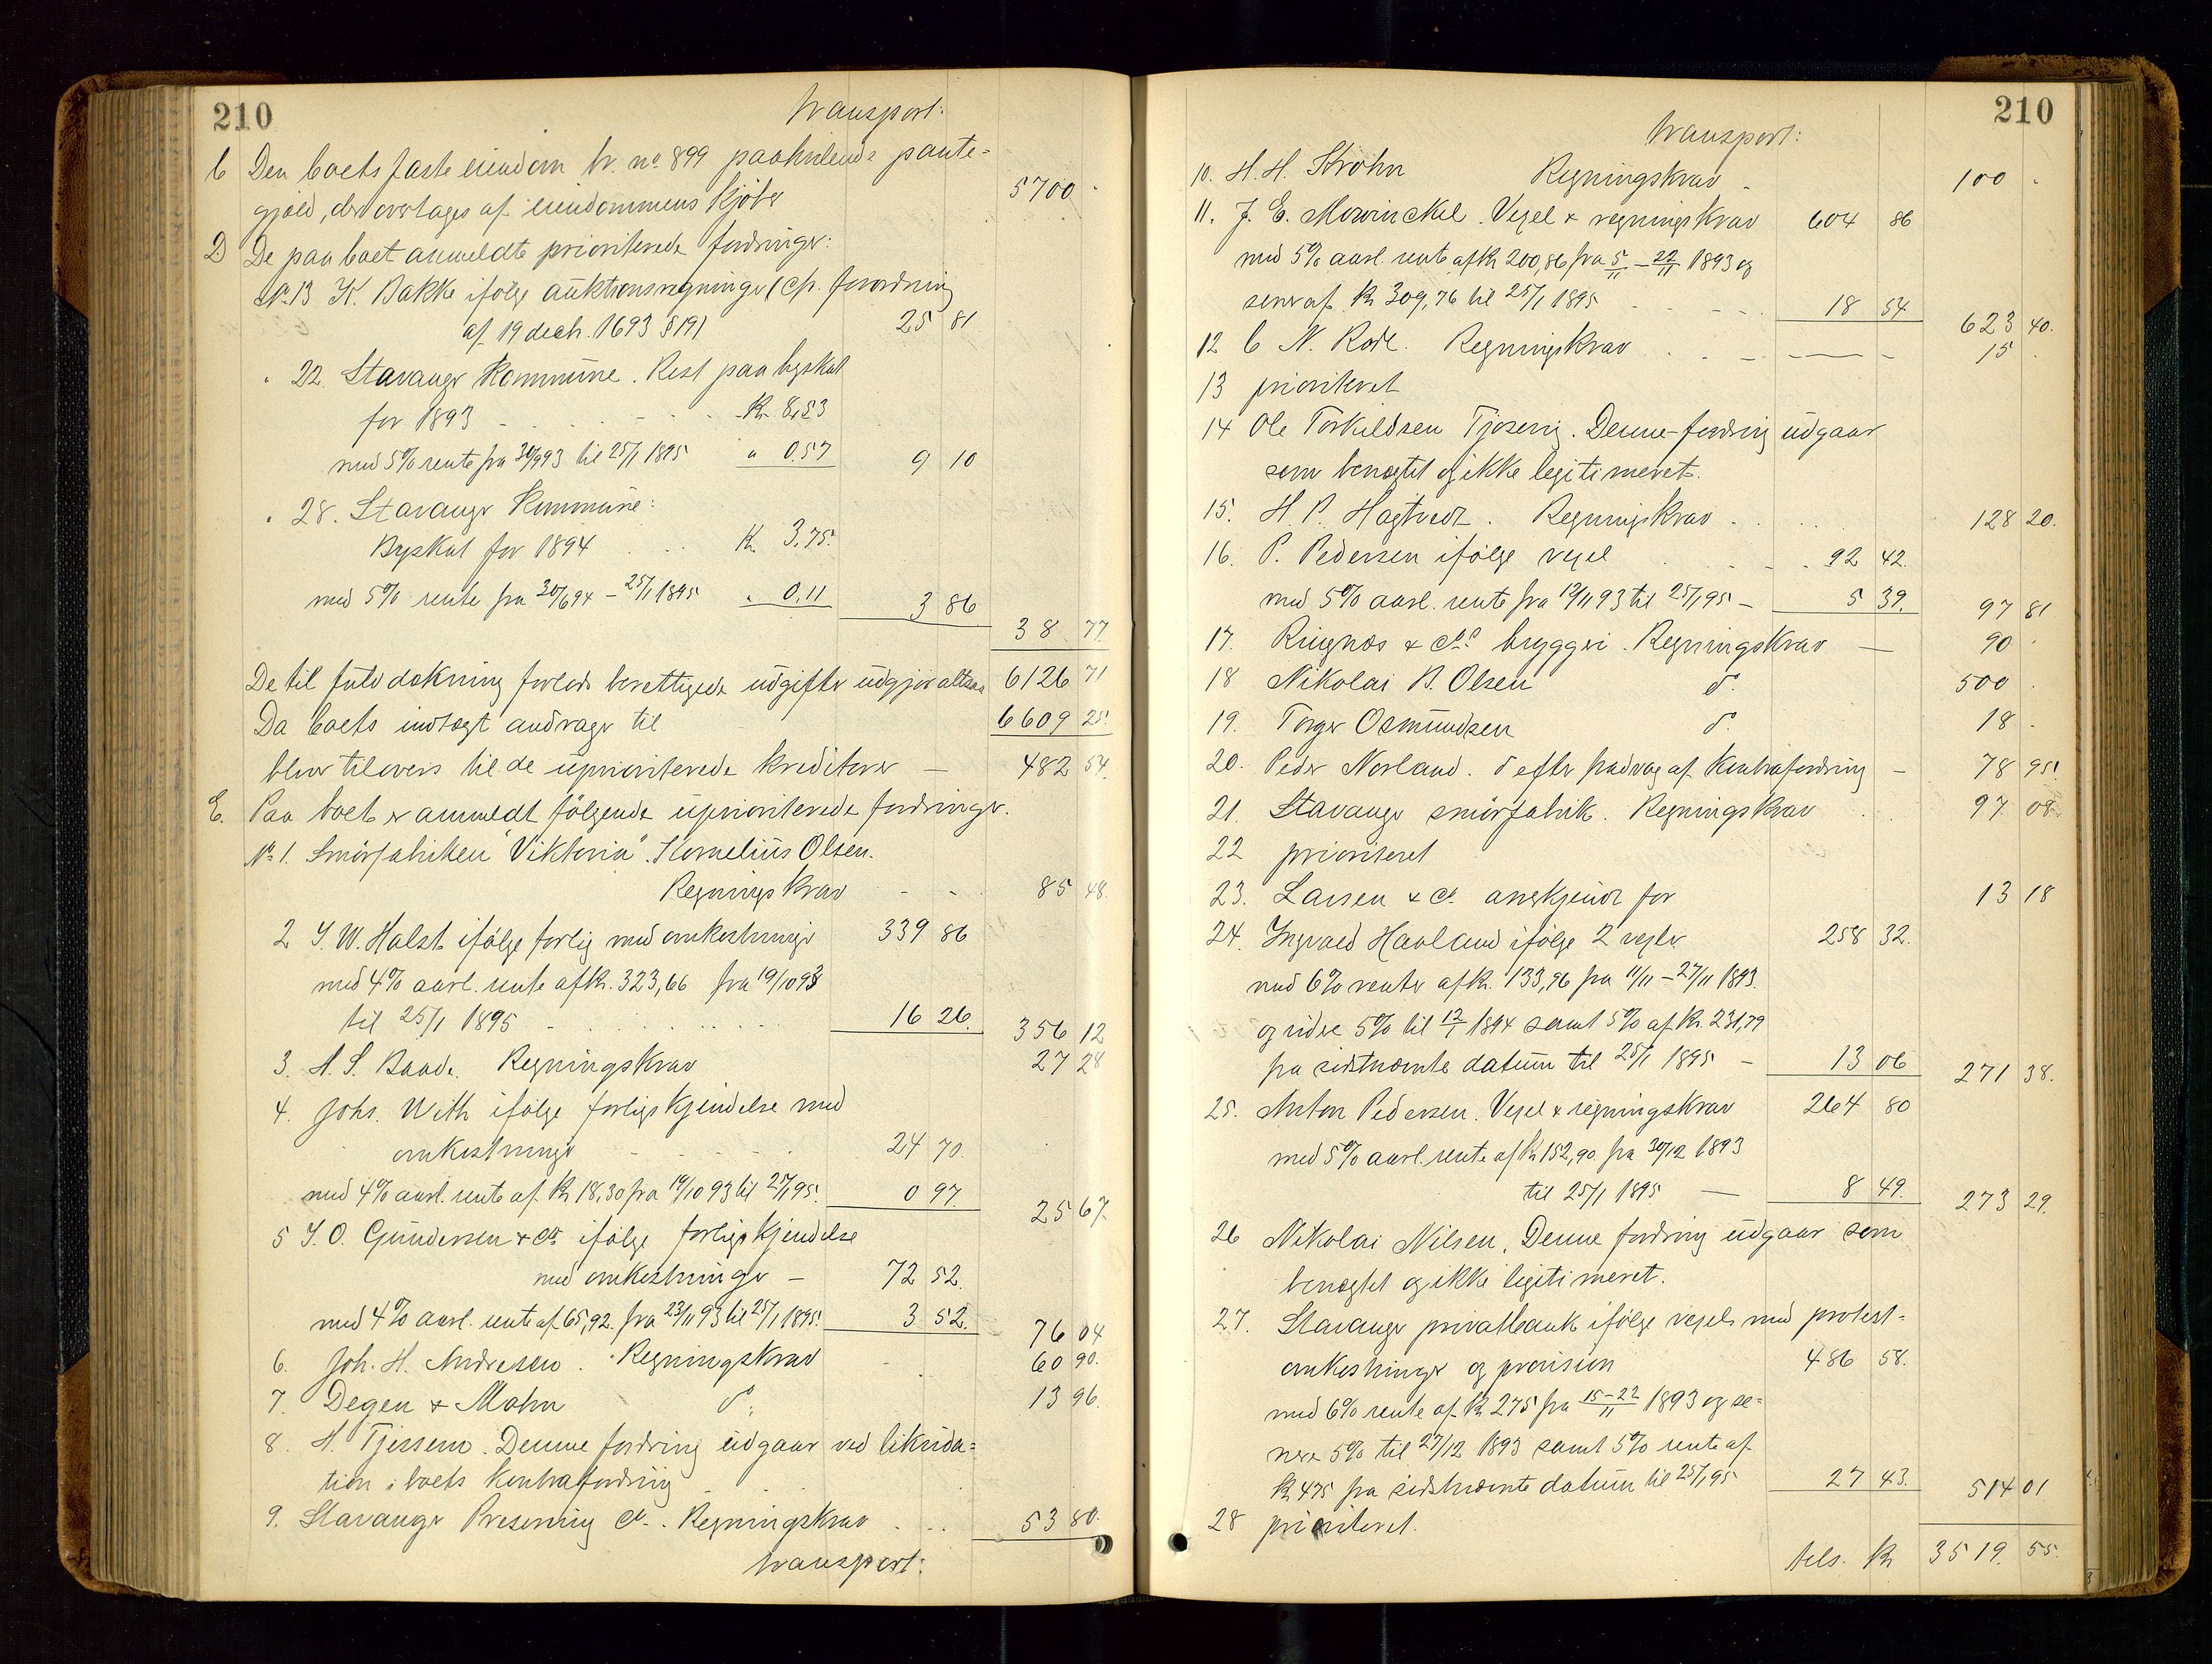 210
transport:
C Den boets faste eiendom br. no. 899 paahvilende pante-
gjæld, der overtages af eiendommens kjøber 5700 -
D De paa boet anmeldte prioriterede fordringer:
No. 13 K. Bakke ifølge auktionsregninger (cfr. forordning
af 19 decbr. 1693 § 19) 25 81
" 22. Stavanger Kommune. Rest paa byskat
for 1893 - - - Kr. 8,53
med 5% rente fra 30/9 93 til 25/1 1895 " 0.57 9 10
" 28. Stavanger Kommune:
Byskat for 1894 Kr. 3,75.
med 5% rente fra 30/6 94 - 25/1 1895 " 0,11 3 86
38 77.
De til fuld dækning forlods berettigede udgifter udgjør altsaa 6126 71
Da boets indtægt andrager til 6609 25.
bliver tilovers til de uprioriterede kreditorer - 482 54.
E. Paa boet er anmeldt følgende uprioriterede fordringer.
No. 1. Smørfabriken "Viktoria". Kornelius Olsen.
Regningskrav - - 85 48.
2 I. W. Halst ifølge forlig med omkostninger 339 86
med 4% aarl. rente af kr. 323,66 fra 19/10 93
til 25/1 1895 - 16 26. 356 12
3. A. S. Baade. Regningskrav 27 28
4. Johs. With ifølge forligskjendelse med
omkostninger 24 70.
med 4% aarl. rente af Kr 18,30 fra 19/10 93 til 25/1 95. 0 97. 25 67.
5 I. O. Gundersen & Co. ifølge forligskjendelse
med omkostninger - 72 52.
med 4% aarl. rente af 65,92. fra 23/11 93 til 25/1 1895. 3 52. 76 04
6. Joh. H. Andresen. Regningskrav 60 90.
7. Degen & Mohn do. 13 96.
8. A. Tjessem. Denne fordring udgaar ved likvida-
tion i boets kontrafordring
9. Stavanger Preserving Co. Regningskrav 53 80.
transport:
210
transport:
10. H. H. Krohn Regningskrav - 100 -
11. J. E. Mowinckel. Vexel & regningskrav 604 86
med 5% aarl. rente af Kr 200,86 fra 5/11 - 22/11 1893 og
senere af Kr 309,76 til 25/1 1895 18 54 623 40.
12 C N. Rode. Regningskrav - 15 -
13 prioriteret
14 Ole Torkildsen Tjosevig. Denne fordring udgaar
som benægtet og ikke legitimeret.
15. H. P. Hagtvedt. Regningskrav 128 20.
16. P. Pedersen ifølge vexel 92 42.
med 5% aarl. rente fra 12/11 93 til 25/1 95 - 5 39. 97 81
17. Ringnæs & Co.s bryggeri. Regningskrav - 90 -
18 Nikolai B. Olsen do. 500 .
19. Torger Osmundsen do. 18 -
20. Peder Norland. do efter fradrag af kontrafordring - 78 95.
21. Stavanger smørfabrik. Regningskrav 97 08.
22 prioriteret
23. Larsen & Co anerkjendt for 13 18
24. Ingvald Haaland ifølge 2 vexler 258 32.
med 6% renter af Kr. 133,96 fra 11/11 - 27/11 1893.
og videre 5% til 12/1 1894 samt 5% af Kr. 231,79
fra sidstnævnte datum til 25/1 1895 - 13 06 271 38.
25. Anton Pedersen. Vexel & regningskrav 264 80
med 5% aarl. rente af Kr 152,90 fra 30/12 1893
til 25/1 1895 - 8 49. 273 29.
26 Nikolai Nilsen. Denne fordring udgaar som
benægtet og ikke legitimeret.
27. Stavanger privatbank ifølge vexels med protest-
omkostninger og provision 486 58.
med 6% rente af Kr 275 fra 15-22/11 1893 og se-
nere 5% til 27/12 1893 samt 5% rente af
Kr 475 fra sidstnævnte datum til 25/1 95 27 43. 514 01
28 prioriteret.
tils. Kr 3519. 55.